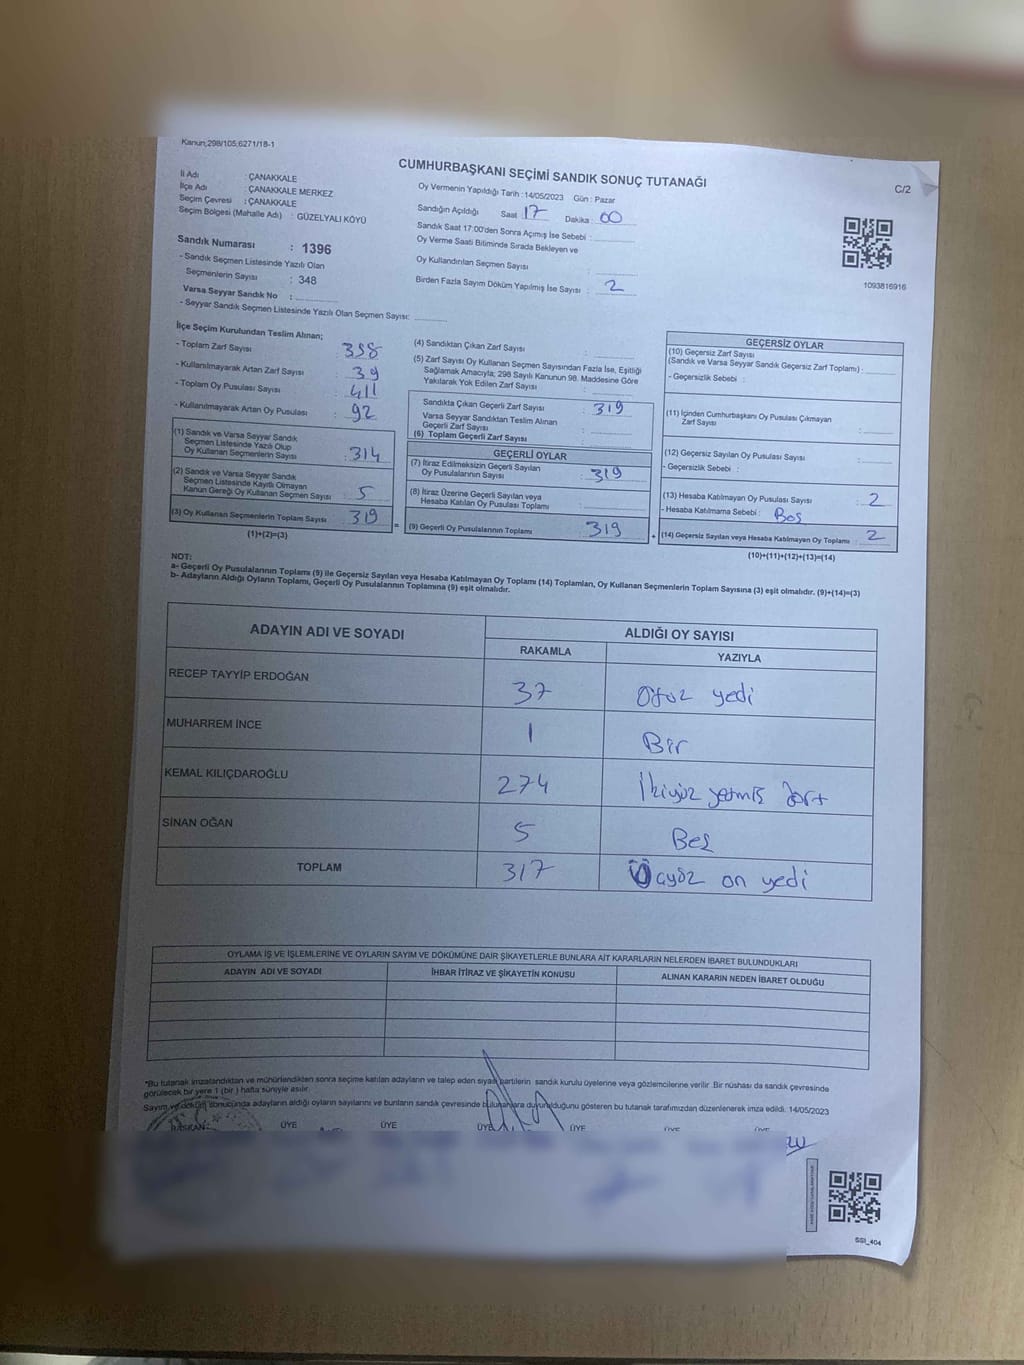 Kanun;298/105;6271/18-1
CUMHURBAŞKANI SEÇİMİ SANDIK SONUÇ TUTANAĞI
C/2
İl Adı : ÇANAKKALE
İlçe Adı : ÇANAKKALE MERKEZ
Seçim Çevresi : ÇANAKKALE
Seçim Bölgesi (Mahalle Adı) : GÜZELYALI KÖYÜ
Sandık Numarası : 1396
- Sandık Seçmen Listesinde Yazılı Olan
Seçmenlerin Sayısı : 348
Varsa Seyyar Sandık No :
- Seyyar Sandık Seçmen Listesinde Yazılı Olan Seçmen Sayısı:
Oy Vermenin Yapıldığı Tarih :14/05/2023 Gün : Pazar
Sandığın Açıldığı Saat 17 Dakika : 00
Sandık Saat 17:00'den Sonra Açımış İse Sebebi :
Oy Verme Saati Bitiminde Sırada Bekleyen ve
Oy Kullandırılan Seçmen Sayısı :
Birden Fazla Sayım Döküm Yapılmış İse Sayısı : 2
1093816916
İlçe Seçim Kurulundan Teslim Alınan;
- Toplam Zarf Sayısı : 358
- Kullanılmayarak Artan Zarf Sayısı : 39
- Toplam Oy Pusulası Sayısı : 411
- Kullanılmayarak Artan Oy Pusulası : 92
(1) Sandık ve Varsa Seyyar Sandık
Seçmen Listesinde Yazılı Olup
Oy Kullanan Seçmenlerin Sayısı : 314
(2) Sandık ve Varsa Seyyar Sandık
Seçmen Listesinde Kayıtlı Olmayan
Kanun Gereği Oy Kullanan Seçmen Sayısı : 5
(3) Oy Kullanan Seçmenlerin Toplam Sayısı : 319
(1)+(2)=(3)
(4) Sandıktan Çıkan Zarf Sayısı :
(5) Zarf Sayısı Oy Kullanan Seçmen Sayısından Fazla İse, Eşitliği
Sağlamak Amacıyla; 298 Sayılı Kanunun 98. Maddesine Göre
Yakılarak Yok Edilen Zarf Sayısı :
Sandıkta Çıkan Geçerli Zarf Sayısı : 319
Varsa Seyyar Sandıktan Teslim Alınan
Geçerli Zarf Sayısı :
(6) Toplam Geçerli Zarf Sayısı :
GEÇERLİ OYLAR
(7) İtiraz Edilmeksizin Geçerli Sayılan
Oy Pusulalarının Sayısı : 319
(8) İtiraz Üzerine Geçerli Sayılan veya
Hesaba Katılan Oy Pusulası Toplamı :
= (9) Geçerli Oy Pusulalarının Toplamı : 319 +
GEÇERSİZ OYLAR
(10) Geçersiz Zarf Sayısı
(Sandık ve Varsa Seyyar Sandık Geçersiz Zarf Toplamı) :
- Geçersizlik Sebebi :
(11) İçinden Cumhurbaşkanı Oy Pusulası Çıkmayan
Zarf Sayısı :
(12) Geçersiz Sayılan Oy Pusulası Sayısı :
- Geçersizlik Sebebi :
(13) Hesaba Katılmayan Oy Pusulası Sayısı : 2
- Hesaba Katılmama Sebebi : Boş
(14) Geçersiz Sayılan veya Hesaba Katılmayan Oy Toplamı : 2
(10)+(11)+(12)+(13)=(14)
NOT:
a- Geçerli Oy Pusulalarının Toplamı (9) ile Geçersiz Sayılan veya Hesaba Katılmayan Oy Toplamı (14) Toplamları, Oy Kullanan Seçmenlerin Toplam Sayısına (3) eşit olmalıdır. (9)+(14)=(3)
b- Adayların Aldığı Oyların Toplamı, Geçerli Oy Pusulalarının Toplamına (9) eşit olmalıdır.
ADAYIN ADI VE SOYADI ALDIĞI OY SAYISI
RAKAMLA YAZIYLA
RECEP TAYYİP ERDOĞAN 37 Otuz yedi
MUHARREM İNCE 1 Bir
KEMAL KILIÇDAROĞLU 274 İkiyüz yetmiş dört
SİNAN OĞAN 5 Beş
TOPLAM 317 Üçyüz on yedi
OYLAMA İŞ VE İŞLEMLERİNE VE OYLARIN SAYIM VE DÖKÜMÜNE DAİR ŞİKAYETLERLE BUNLARA AİT KARARLARIN NELERDEN İBARET BULUNDUKLARI
ADAYIN ADI VE SOYADI İHBAR İTİRAZ VE ŞİKAYETİN KONUSU ALINAN KARARIN NEDEN İBARET OLDUĞU
*Bu tutanak imzalandıktan ve mühürlendikten sonra seçime katılan adayların ve talep eden siyasi partilerin sandık kurulu üyelerine veya gözlemcilerine verilir. Bir nüshası da sandık çevresinde
görülecek bir yere 1 (bir ) hafta süreyle asılır.
Sayım ve döküm sonucunda adayların aldığı oyların sayılarını ve bunların sandık çevresinde bulunanlara duyurulduğunu gösteren bu tutanak tarafımızdan düzenlenerek imza edildi. 14/05/2023
BAŞKAN ÜYE ÜYE ÜYE ÜYE ÜYE ÜYE
SSI_404